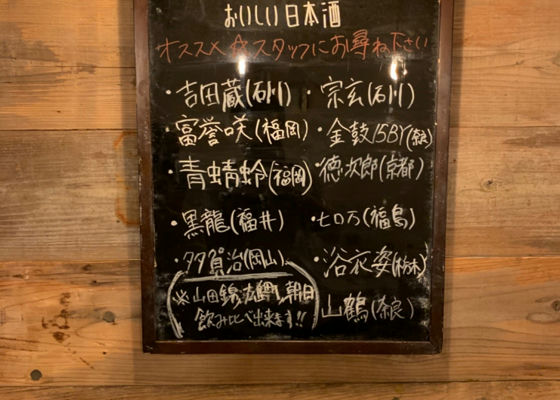 おいしい日本酒
オススメ☆スタッフにお尋ね下さい
・吉田蔵(石川)
・宗玄(石川)
・富誉咲(福岡)
・金鼓15BY
・青蜻蛉(福岡)
・徳次郎(京都)
・黒龍(福井)
・七ロ万(福島)
・多賀治(岡山)
・浴衣姿(栃木)
※山田錦、雄町、朝日
飲み比べ出来ます!!
山鶴(奈良)